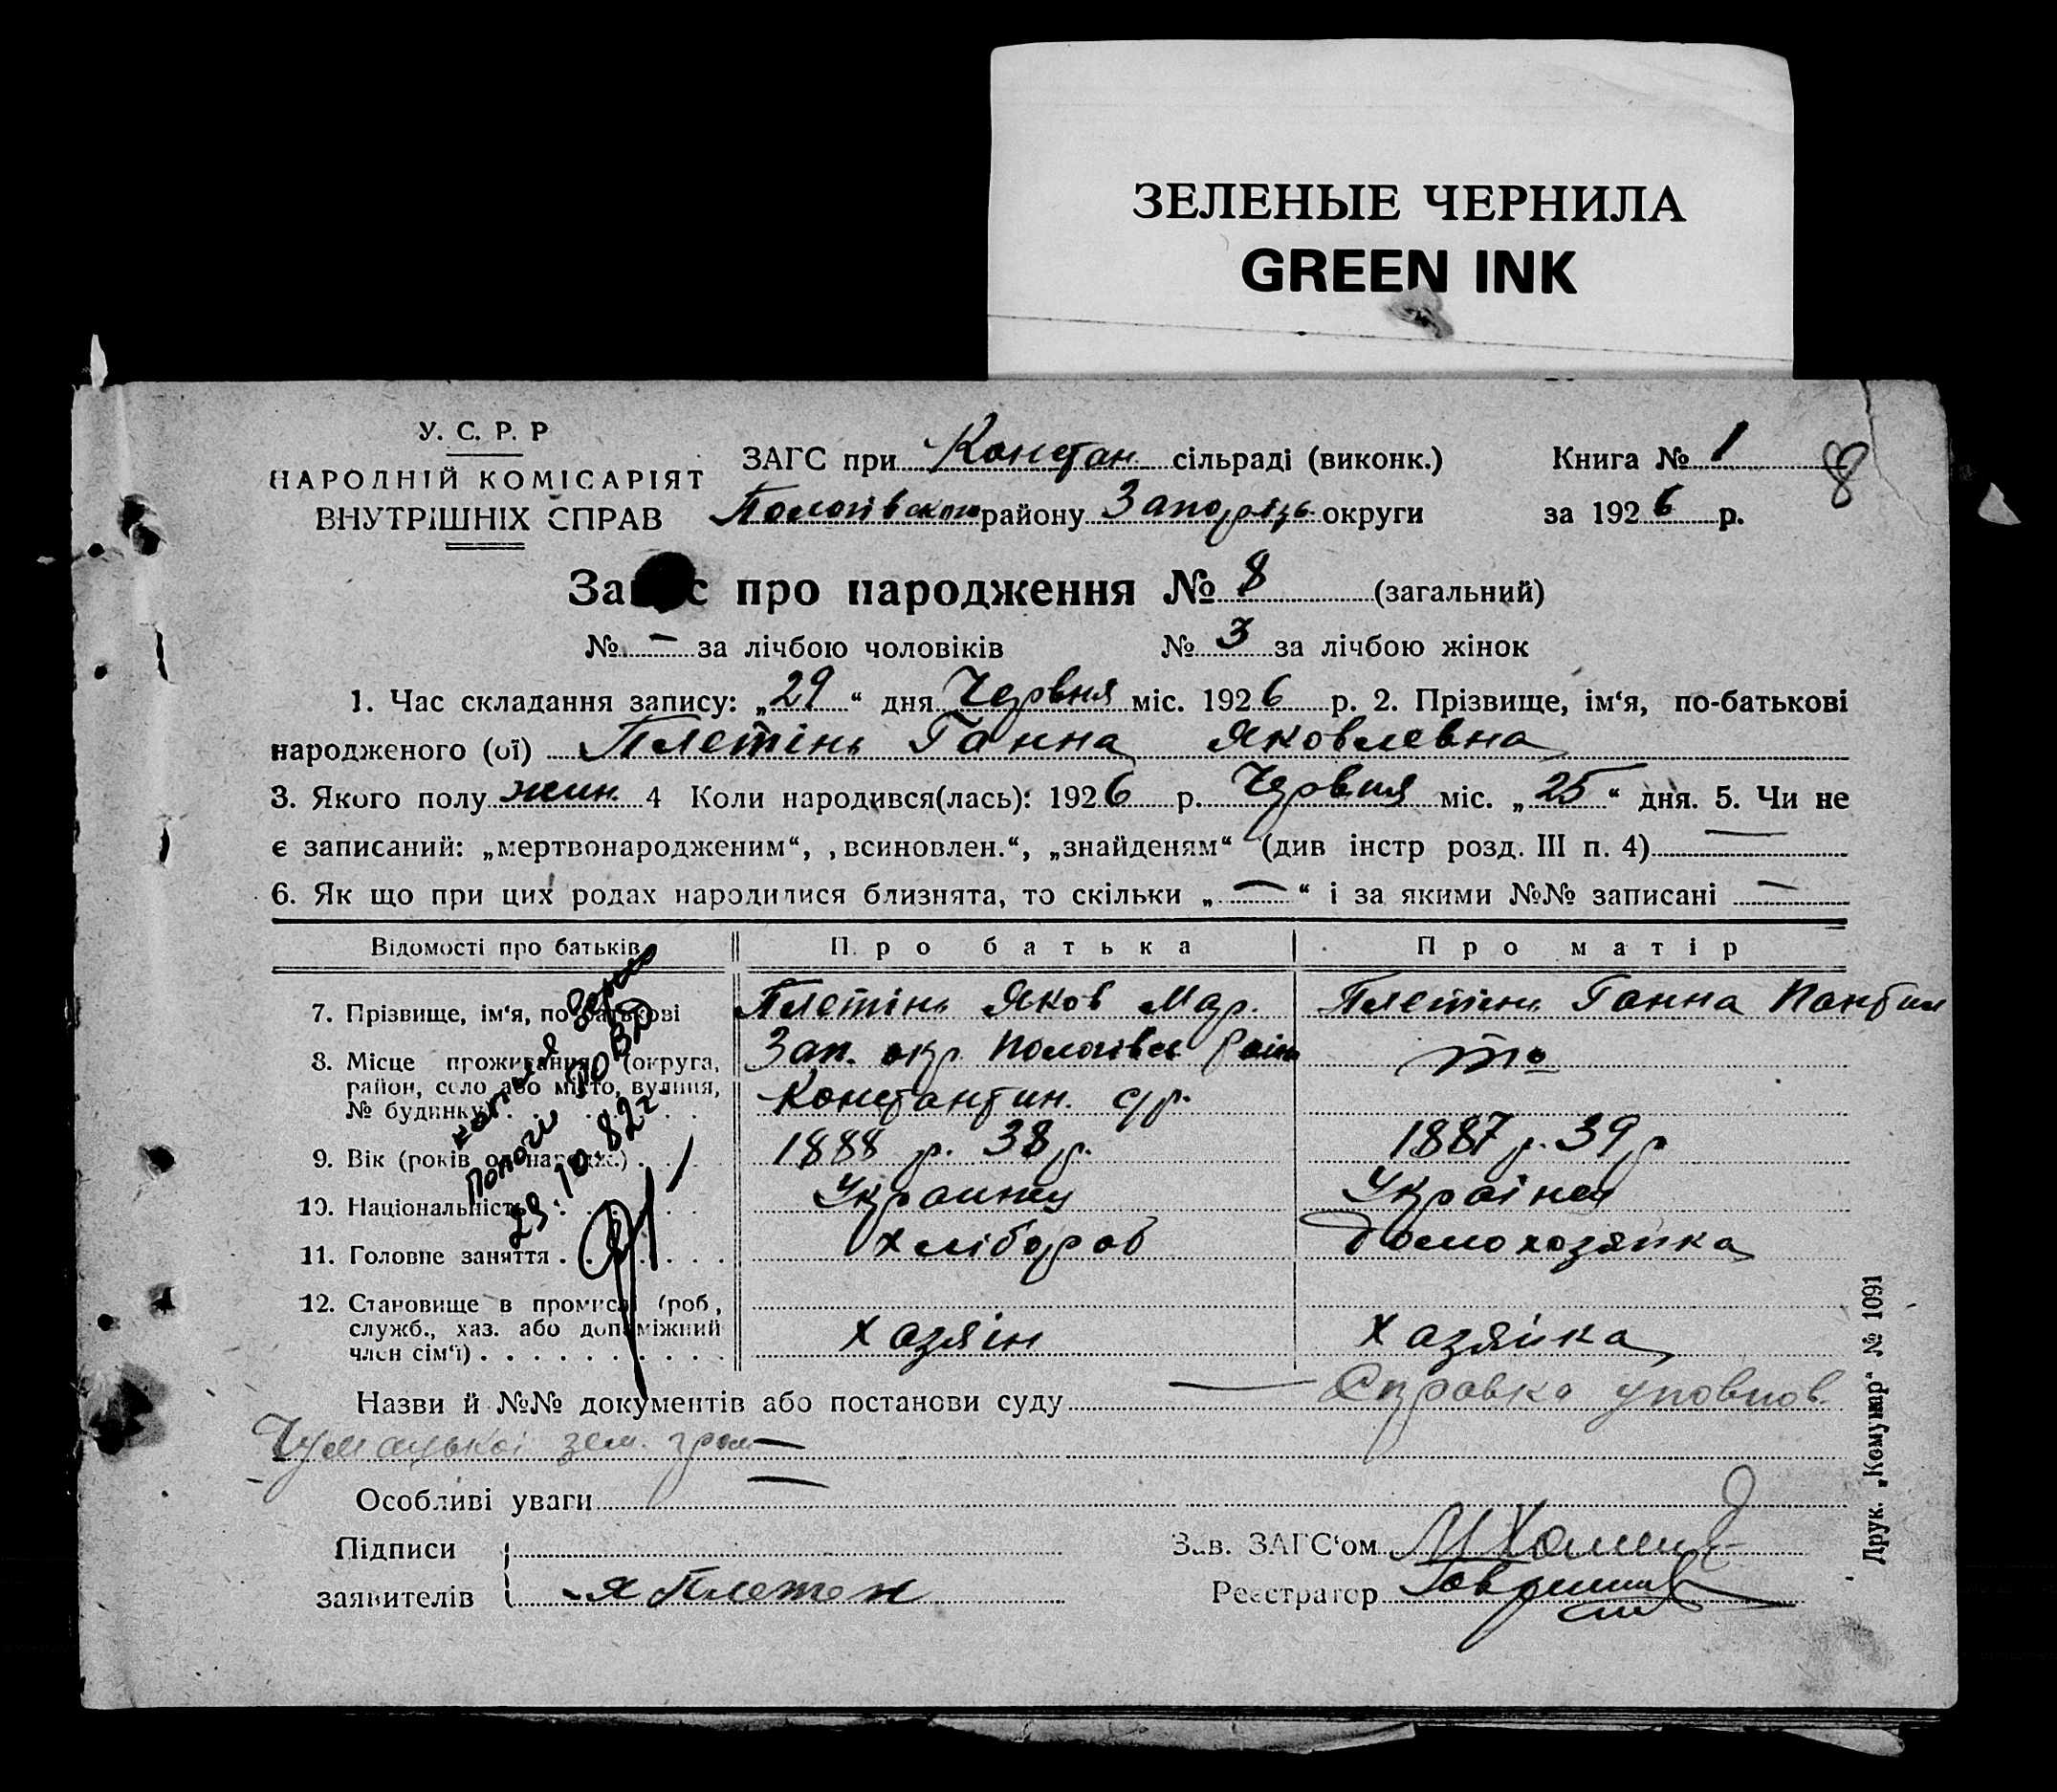 ЗЕЛЕНЫЕ ЧЕРНИЛА
GREEN INK
У. С. Р. Р
НАРОДНІЙ КОМІСАРІЯТ
ВНУТРІШНІХ СПРАВ
ЗАГС при Констан. сільраді (виконк.)
Пологівського району Запоріз. округи
Книга № 1
за 1926 р.
8
Запис про народження № 8 (загальний)
№ – за лічбою чоловіків № 3 за лічбою жінок
1. Час складання запису: „29“ дня Червня міс. 1926 р. 2. Прізвище, ім‘я, по-батькові
народженого (ої) Плетінь Ганна Яковлевна
3. Якого полу жин. 4 Коли народився(лась): 1926 р. Червня міс. „25“ дня. 5. Чи не
є записаний: „мертвонародженим“, „всиновлен.“, „знайденям“ (див інстр розд. III п. 4) —
6. Як що при цих родах народилися близнята, то скільки „—“ і за якими №№ записані —
Відомості про батьків Про батька Про матір
7. Прізвище, ім‘я, по-батькові Плетінь Яков Мар. Плетінь Ганна Пантил
8. Місце проживання (округа, Зап. окр. Пологівск Район то
район, село або місто, вулиця, Константин. с/р.
№ будинку)
9. Вік (років од народж.) 1888 р. 38 р. 1887 р. 39 р
10. Національність Украинец Українка
11. Головне заняття Хлібороб Домохозяйка
12. Становище в промислі (роб.,
служб., хаз. або допоміжний Хазяін Хазяйка
член сім‘ї)
Пологи РОВД
29.10.82г
Назви й №№ документів або постанови суду — Справка уповнов.
Чумацької зем. гром —
Особливі уваги —
Підписи
заявителів Я Плетен
Зав. ЗАГС‘ом
Реєстратор
Друк. „Комунар“ № 1091